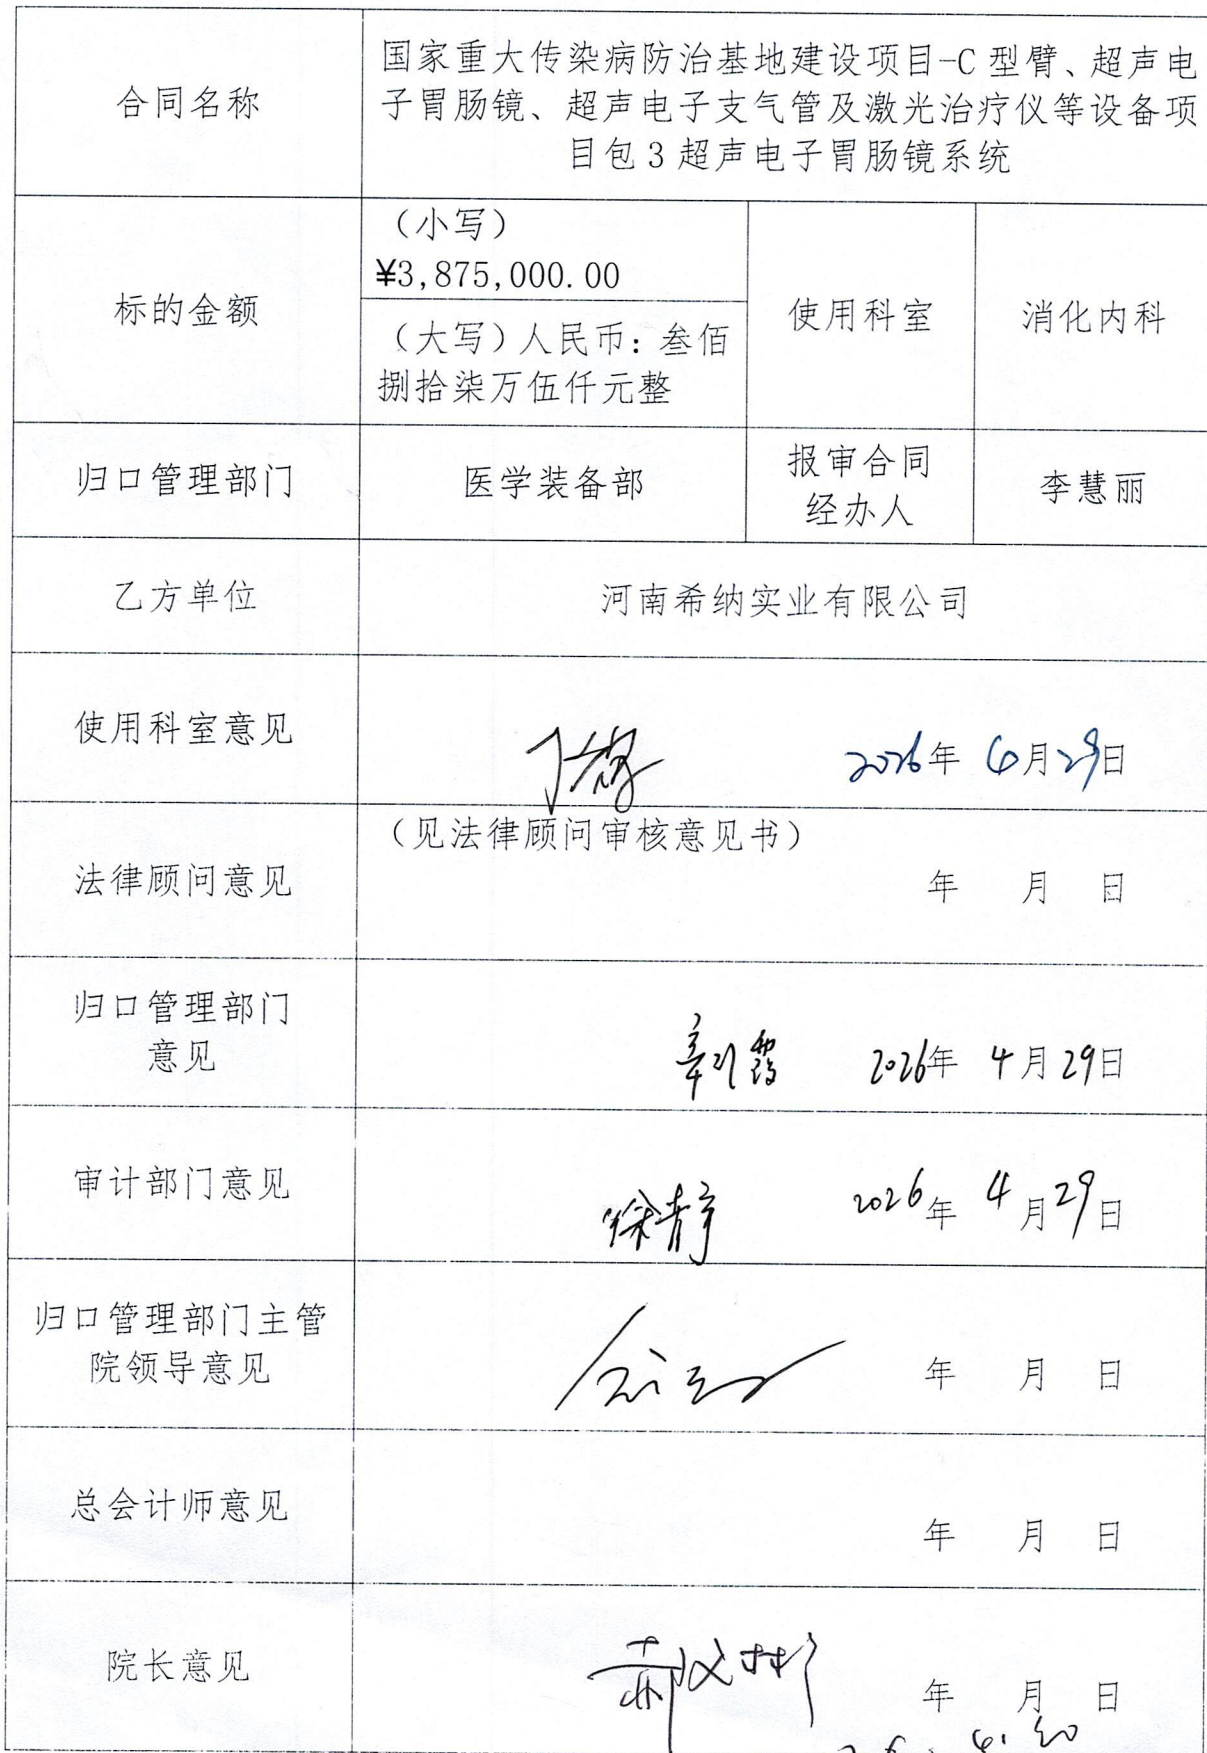 合同名称
国家重大传染病防治基地建设项目-C型臂、超声电
子胃肠镜、超声电子支气管及激光治疗仪等设备项
目包3超声电子胃肠镜系统
标的金额
（小写）
¥3,875,000.00
（大写）人民币：叁佰
捌拾柒万伍仟元整
使用科室
消化内科
归口管理部门
医学装备部
报审合同
经办人
李慧丽
乙方单位
河南希纳实业有限公司
使用科室意见
2026年 4月29日
（见法律顾问审核意见书）
法律顾问意见
年 月 日
归口管理部门
意见
2026年 4月29日
审计部门意见
2026年 4月29日
归口管理部门主管
院领导意见
年 月 日
总会计师意见
年 月 日
院长意见
年 月 日